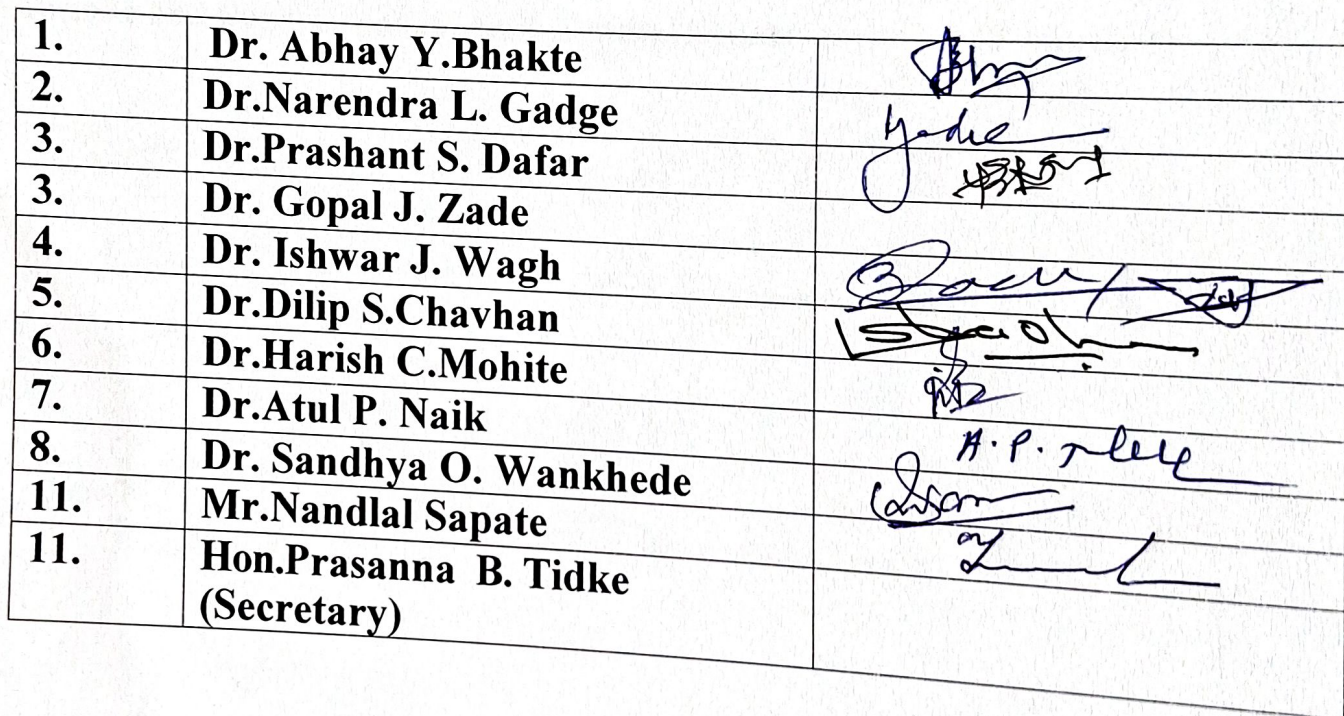 1. Dr. Abhay Y.Bhakte
2. Dr.Narendra L. Gadge
3. Dr.Prashant S. Dafar
3. Dr. Gopal J. Zade
4. Dr. Ishwar J. Wagh
5. Dr.Dilip S.Chavhan
6. Dr.Harish C.Mohite
7. Dr.Atul P. Naik A. P.
8. Dr. Sandhya O. Wankhede
11. Mr.Nandlal Sapate
11. Hon.Prasanna B. Tidke
(Secretary)